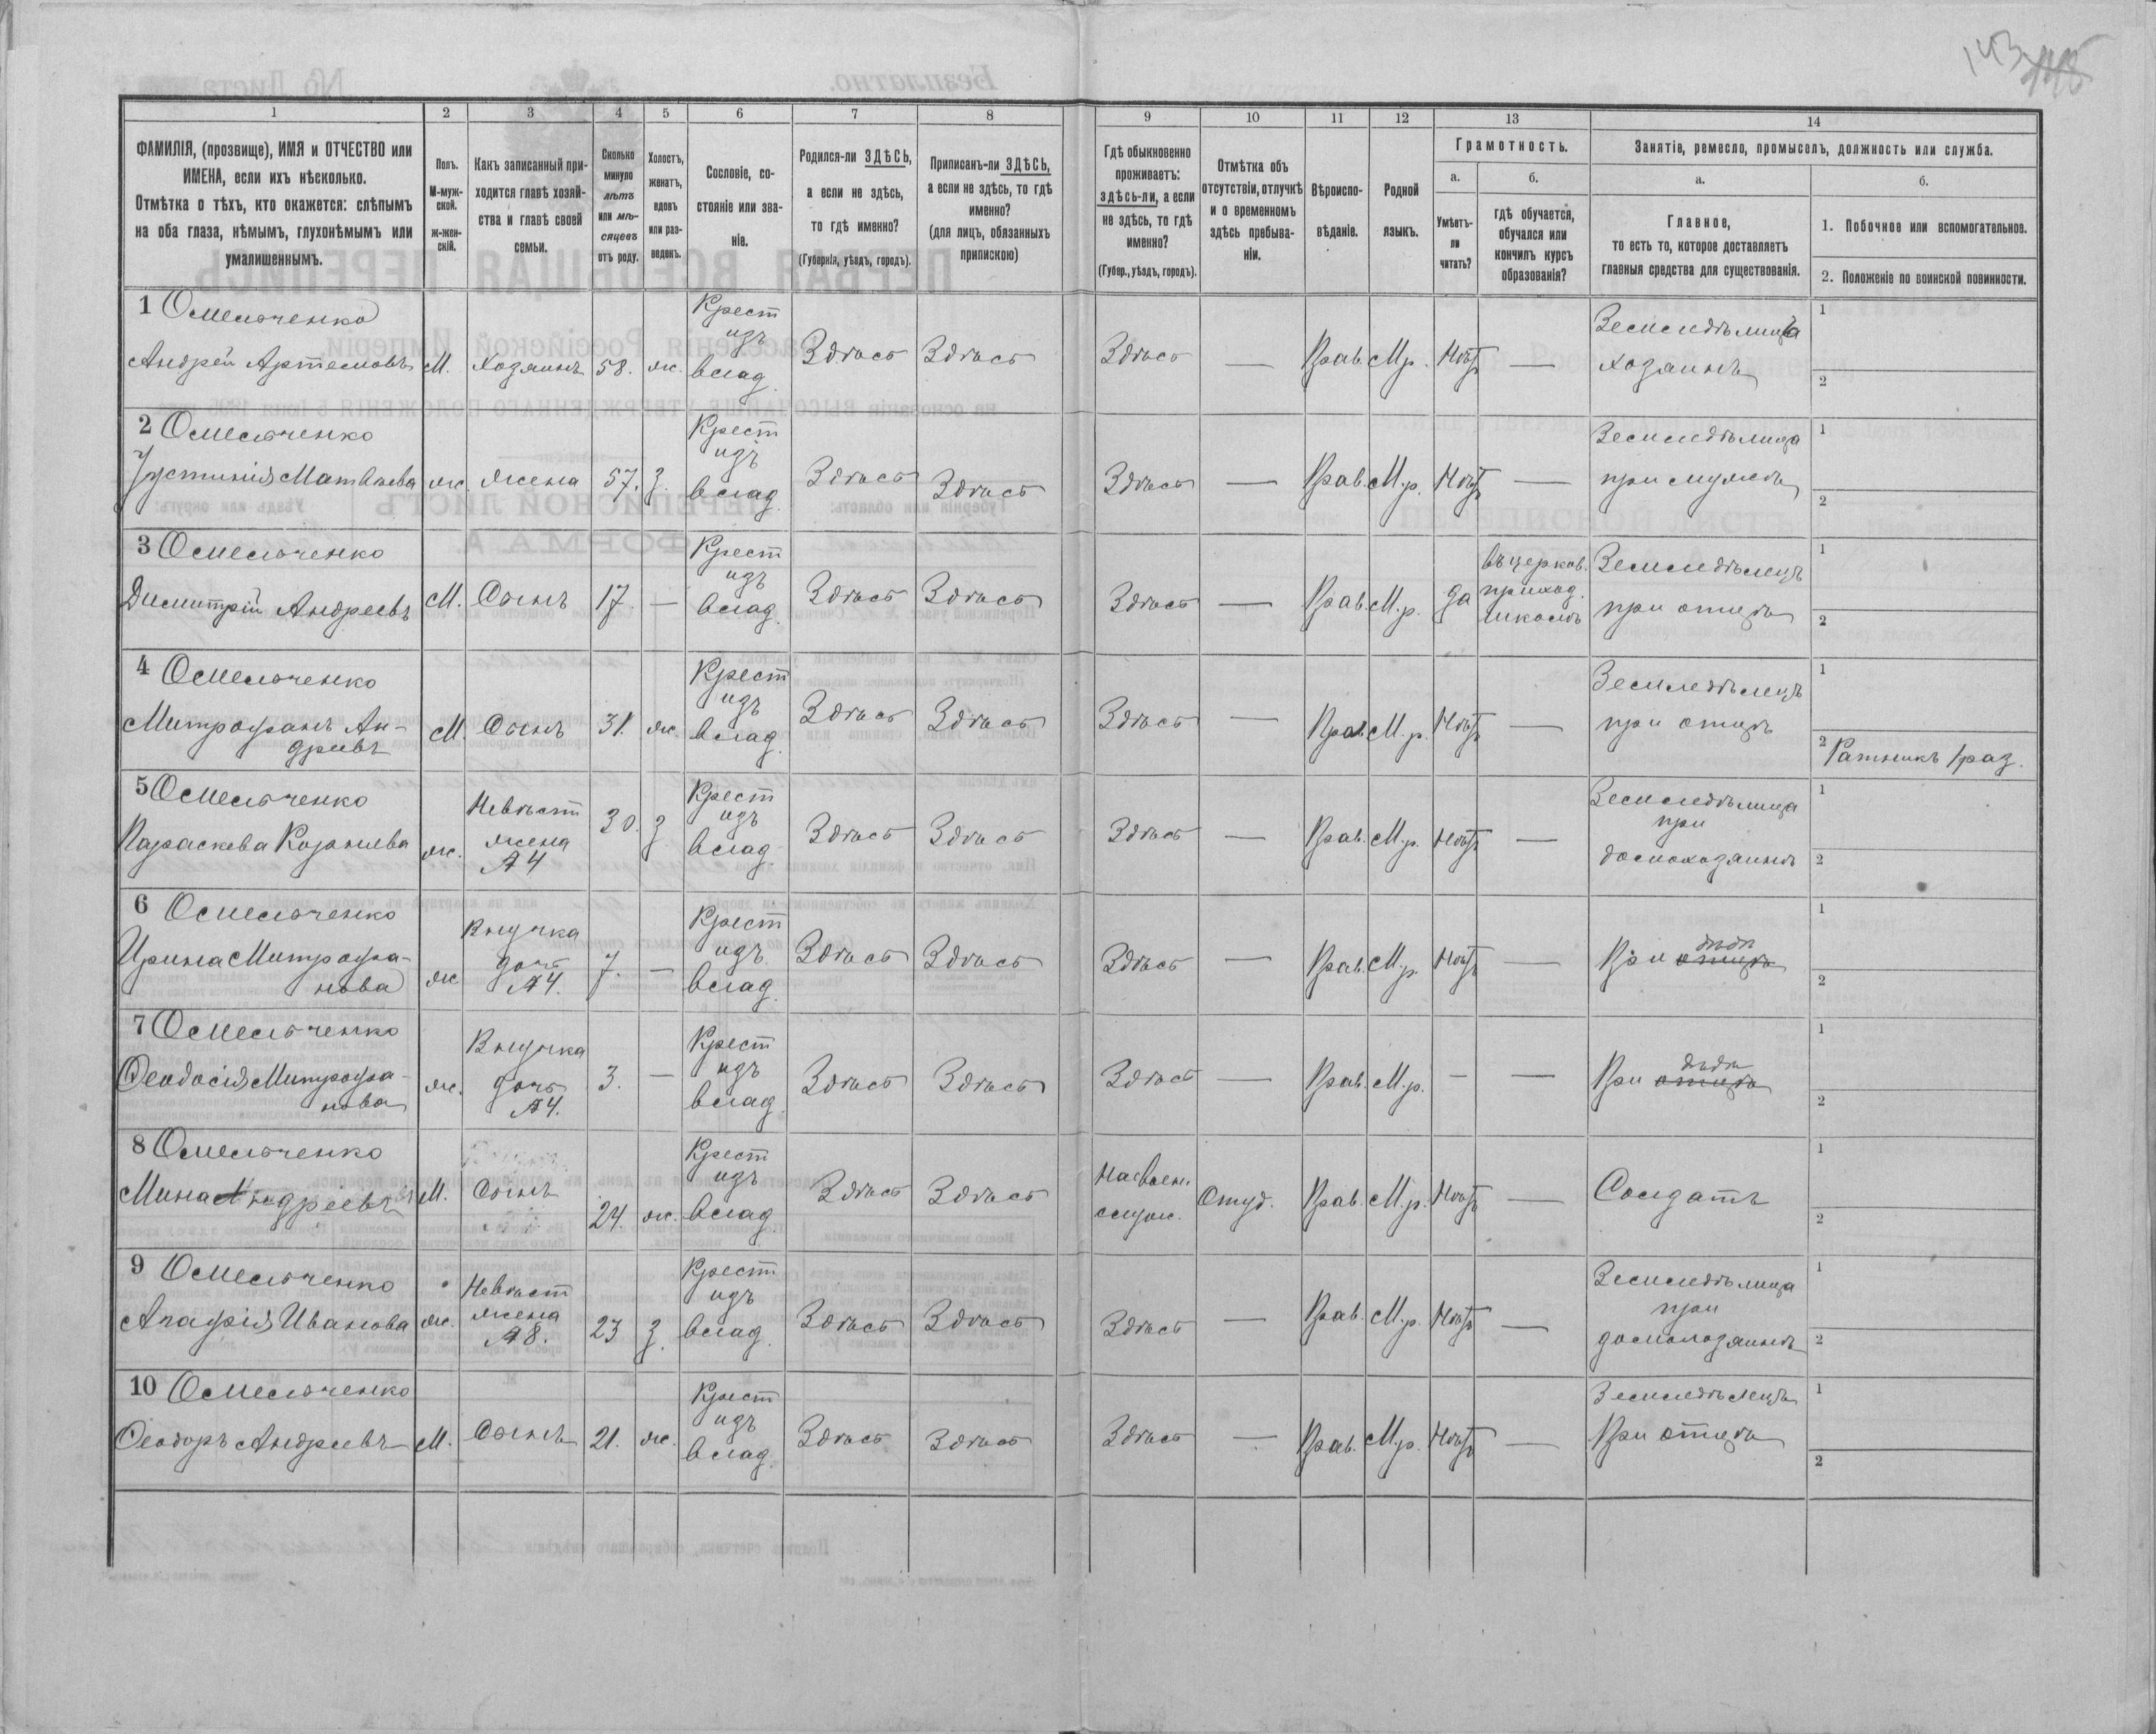 143
1
2
3
4
5
6
7
8
9
10
11
12
13
14
ФАМИЛІЯ, (прозвище), ИМЯ и ОТЧЕСТВО или
ИМЕНА, если ихъ нѣсколько.
Отмѣтка о тѣхъ, кто окажется: слѣпымъ
на оба глаза, нѣмымъ, глухонѣмымъ или
умалишеннымъ.
Полъ.
М-муж-
ской.
Ж-жен-
скій.
Какъ записанный при-
ходится главѣ хозяй-
ства и главѣ своей
семьи.
Сколько
минуло
лѣтъ
или мѣ-
сяцевъ
отъ роду.
Холостъ,
женатъ,
вдовъ
или раз-
веденъ.
Сословіе, со-
стояніе или зва-
ніе.
Родился-ли ЗДѢСЬ,
а если не здѣсь,
то гдѣ именно?
(Губернія, уѣздъ, городъ).
Приписанъ-ли ЗДѢСЬ,
а если не здѣсь, то гдѣ
именно?
(для лицъ, обязанныхъ
припискою)
Гдѣ обыкновенно
проживаетъ:
здѣсь-ли, а если
не здѣсь, то гдѣ
именно?
(Губер., уѣздъ, городъ).
Отмѣтка объ
отсутствіи, отлучкѣ
и о временномъ
здѣсь пребыва-
ніи.
Вѣроиспо-
вѣданіе.
Родной
языкъ.
Грамотность.
а.
Умѣетъ-
ли
читать?
б.
гдѣ обучается,
обучался или
кончилъ курсъ
образованія?
Занятіе, ремесло, промыселъ, должность или служба.
а.
Главное,
то есть то, которое доставляетъ
главныя средства для существованія.
б.
1. Побочное или вспомогательное.
2. Положеніе по воинской повинности.
1 Омельченко
Андрей Артемовъ М. Хозяинъ 58. ж. Крест изъ влад. Здѣсь Здѣсь Здѣсь — Прав. М.р. Нѣтъ — хозяинъ
1
2
2 Омельченко
Іустинія Матвѣева ж. жена 57. з. Крест изъ влад. Здѣсь Здѣсь Здѣсь — Прав. М.р. Нѣтъ — Земледѣлица при мужѣ
1
2
3 Омельченко
Димитрій Андреевъ М. Сынъ 17. — Крест изъ влад. Здѣсь Здѣсь Здѣсь — Прав. М.р. да въ церков. приход. школѣ Земледѣлецъ при отцѣ
1
2
4 Омельченко
Митрофанъ Ан-
дреевъ М. Сынъ 31. ж. Крест изъ влад. Здѣсь Здѣсь Здѣсь — Прав. М.р. Нѣтъ — Земледѣлецъ при отцѣ
1
2 Ратникъ 1 раз.
5 Омельченко
Параскева Корнѣева ж. Невѣст жена №4 30. з. Крест изъ влад. Здѣсь Здѣсь Здѣсь — Прав. М.р. Нѣтъ — Земледѣлица при домохозяинѣ
1
2
6 Омельченко
Ирина Митрофа-
нова ж. Внучка дочь №4. 7. — Крест изъ влад. Здѣсь Здѣсь Здѣсь — Прав. М.р. Нѣтъ — При отцѣ дѣдѣ
1
2
7 Омельченко
Ѳеодосія Митрофа-
нова ж. Внучка дочь №4. 3. — Крест изъ влад. Здѣсь Здѣсь Здѣсь — Прав. М.р. — — При отцѣ дѣдѣ
1
2
8 Омельченко
Мина Андреевъ М. Сынъ 24. ж. Крест изъ влад. Здѣсь Здѣсь На воен. служ. Отуд. Прав. М.р. Нѣтъ — Солдатъ
1
2
9 Омельченко
Агафія Иванова ж. Невѣст жена №8. 23 з. Крест изъ влад. Здѣсь Здѣсь Здѣсь — Прав. М.р. Нѣтъ — Земледѣлица при домохозяинѣ
1
2
10 Омельченко
Ѳеодоръ Андреевъ М. Сынъ 21. ж. Крест изъ влад. Здѣсь Здѣсь Здѣсь — Прав. М.р. Нѣтъ — Земледѣлецъ При отцѣ
1
2